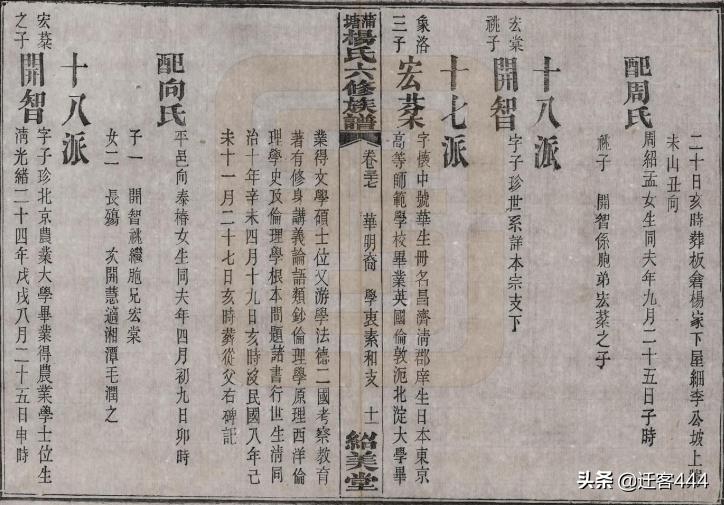 二十日亥時葬板倉楊家下屋細李公坡上
未山丑向
配周氏
周紹孟女生同夫年九月二十五日子時
祧子 開智係胞弟宏棻之子
十八派
宏棠
祧子
開智
字子珍世系詳本宗支下
十七派
象洛
三子
宏棻
字懷中號華生冊名昌濟清郡庠生日本東京
高等師範學校畢業英國倫敦㧖北淀大學畢
蒲塘楊氏六修族譜
卷三七
華明裔 學衷素和支 十一
紹美堂
業得文學碩士位又游學法德二國考察教育
著有修身講義論語類鈔倫理學原理西洋倫
理學史及倫理學根本問題諸書行世生清同
治十年辛未四月十九日亥時沒民國八年己
未十一月二十七日亥時葬從父右碑記
配向氏
平邑向泰椿女生同夫年四月初九日卯時
子一 開智祧繼胞兄宏棠
女二 長殤 次開慧適湘潭毛潤之
十八派
宏棻
之子
開智
字子珍北京農業大學畢業得農業學士位生
清光緒二十四年戊戌八月二十五日申時
头条 @迁客444